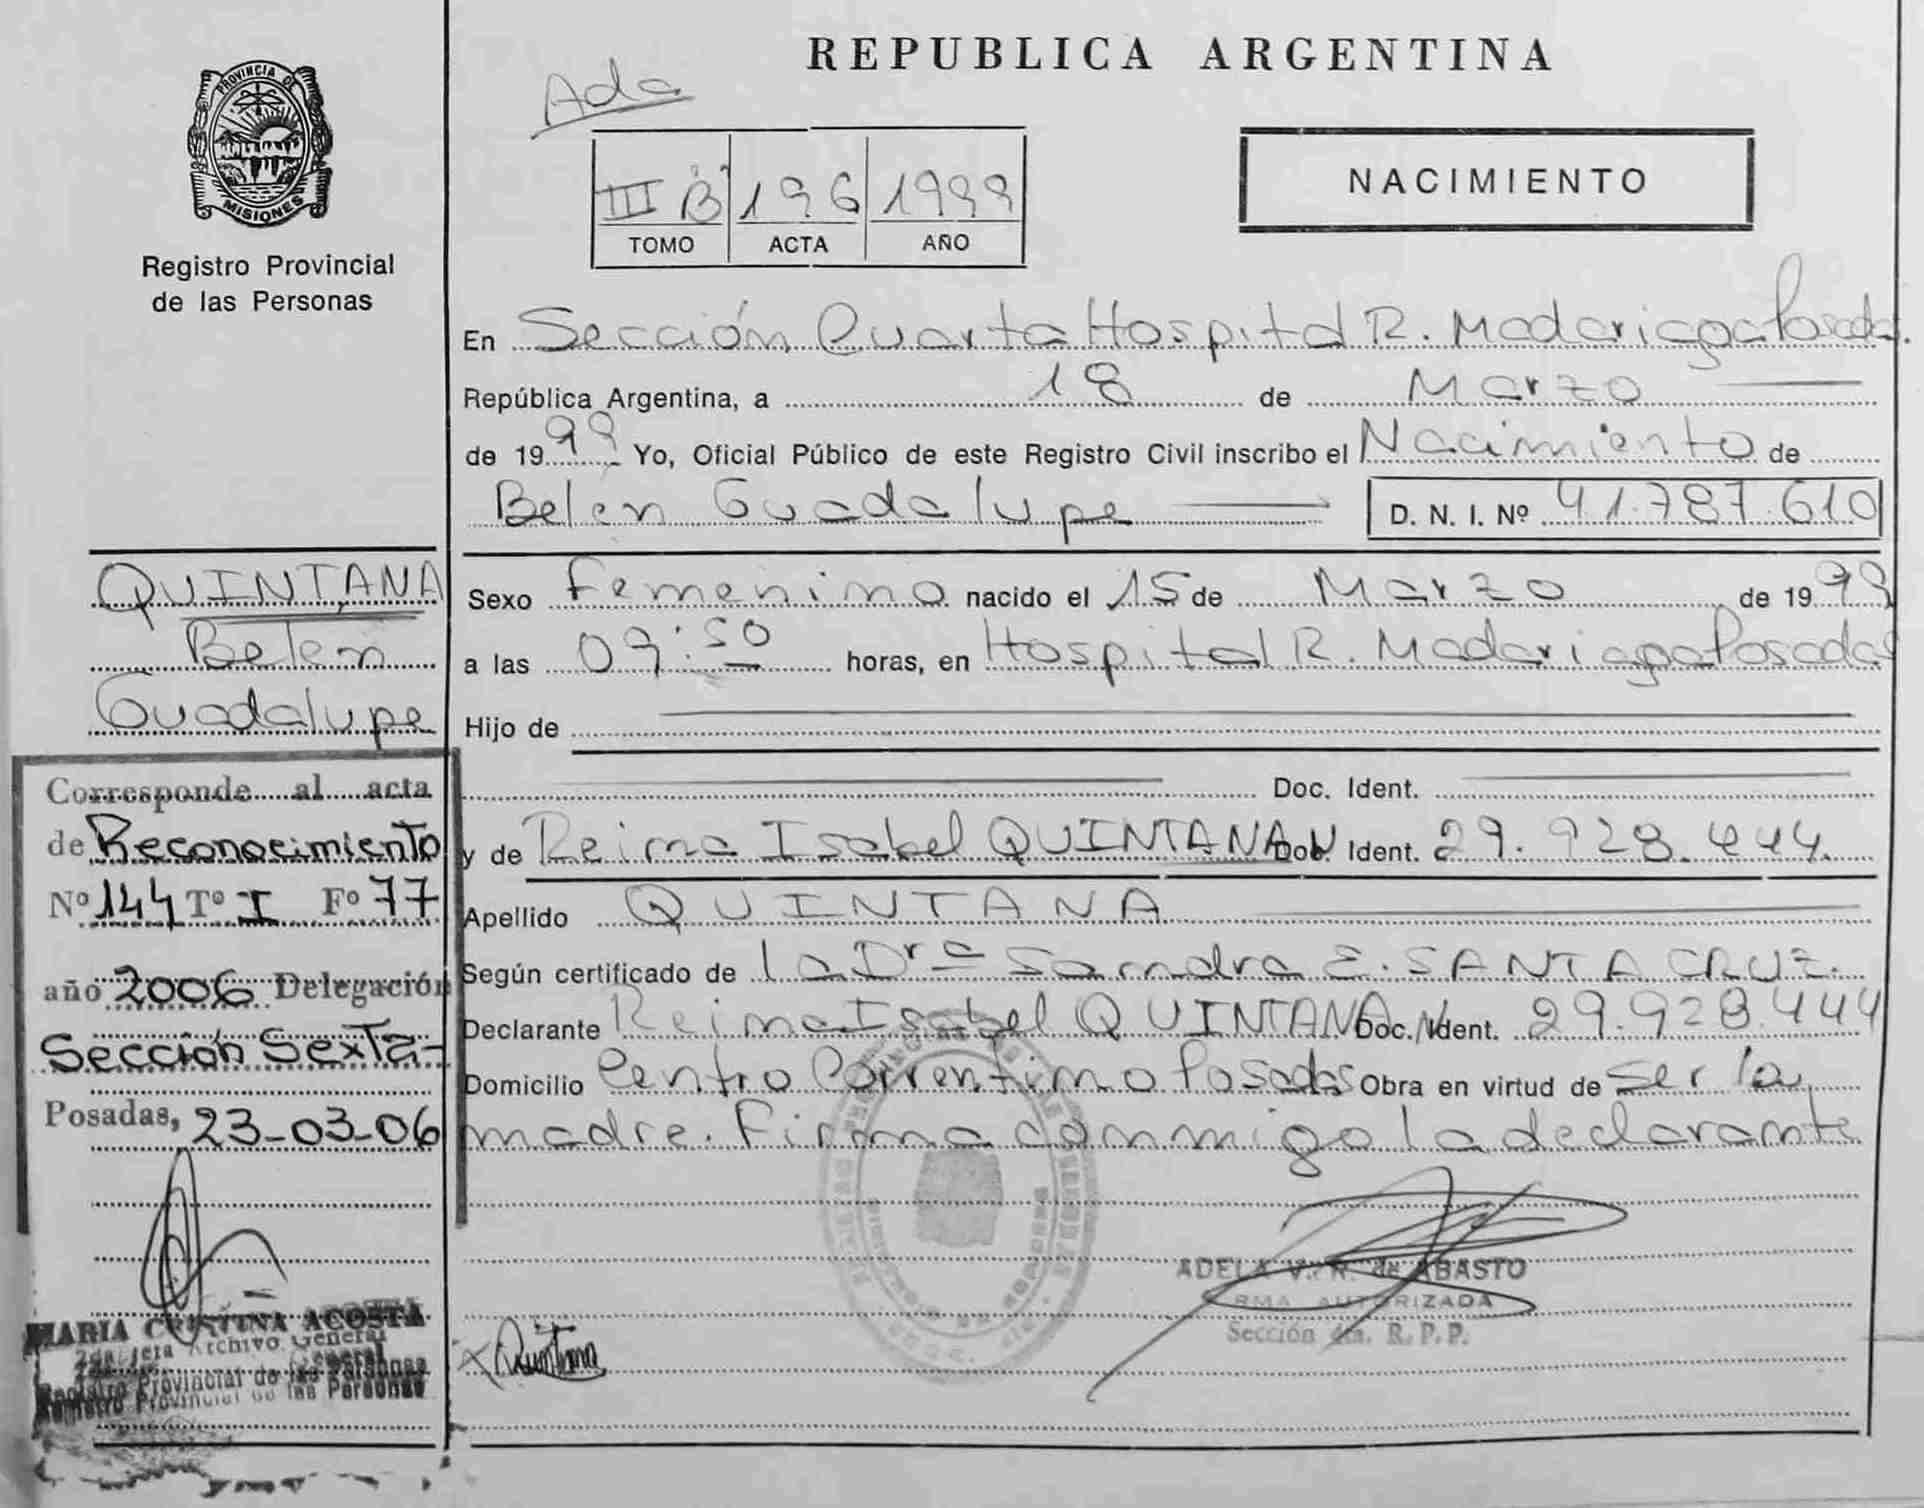 REPUBLICA ARGENTINA
Ada
PROVINCIA DE
MISIONES
Registro Provincial
de las Personas
III B 196 1999
TOMO ACTA AÑO
NACIMIENTO
En Sección Cuarta Hospital R. Madariaga Posadas.
República Argentina, a 18 de Marzo
de 1999 Yo, Oficial Público de este Registro Civil inscribo el Nacimiento de
Belen Guadalupe D. N. I. Nº 41.787.610
QUINTANA
Belen
Guadalupe
Sexo Femenino nacido el 15 de Marzo de 1999
a las 09:50 horas, en Hospital R. Madariaga Posadas
Hijo de
Doc. Ident.
y de Reina Isabel QUINTANA Doc. Ident. 29.928.444.
Apellido QUINTANA
Según certificado de la Drª Sandra E. SANTA CRUZ.
Declarante Reina Isabel QUINTANA Doc. Ident. 29.928.444
Domicilio Centro Correntino Posadas Obra en virtud de ser la
madre. Firma conmigo la declarante
Corresponde al acta
de Reconocimiento
Nº 144 Tº I Fº 77
año 2006 Delegación
Sección Sexta-
Posadas, 23-03-06
MARIA CRISTINA ACOSTA
2da Jefa Archivo General
Registro Provincial de las Personas
ADELA V. R. de ABASTO
FIRMA AUTORIZADA
Sección 4ta. R.P.P.
x Quintana